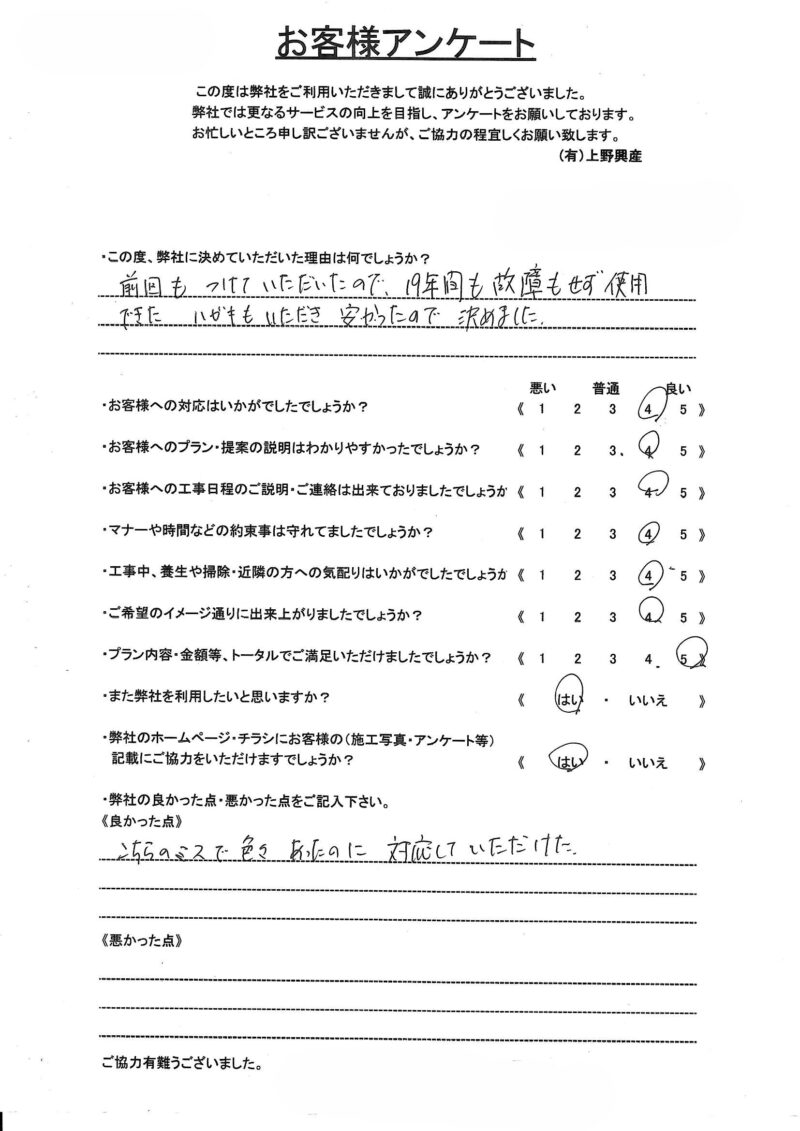 お客様アンケート
この度は弊社をご利用いただきまして誠にありがとうございました。
弊社では更なるサービスの向上を目指し、アンケートをお願いしております。
お忙しいところ申し訳ございませんが、ご協力の程宜しくお願い致します。
(有)上野興産
・この度、弊社に決めていただいた理由は何でしょうか?
前回も つけていただいたので、19年間も故障もせず使用
できた ハガキもいただき 安かったので 決めました。
悪い 普通 良い
・お客様への対応はいかがでしたでしょうか? 《 1 2 3 4 5 》
・お客様へのプラン・提案の説明はわかりやすかったでしょうか? 《 1 2 3 4 5 》
・お客様への工事日程のご説明・ご連絡は出来ておりましたでしょうか 《 1 2 3 4 5 》
・マナーや時間などの約束事は守れてましたでしょうか? 《 1 2 3 4 5 》
・工事中、養生や掃除・近隣の方への気配りはいかがでしたでしょうか 《 1 2 3 4 5 》
・ご希望のイメージ通りに出来上がりましたでしょうか? 《 1 2 3 4 5 》
・プラン内容・金額等、トータルでご満足いただけましたでしょうか? 《 1 2 3 4 5 》
・また弊社を利用したいと思いますか? 《 はい ・ いいえ 》
・弊社のホームページ・チラシにお客様の(施工写真・アンケート等)
記載にご協力をいただけますでしょうか? 《 はい ・ いいえ 》
・弊社の良かった点・悪かった点をご記入下さい。
《良かった点》
こちらのミスで色々 あったのに 対応していただけた。
《悪かった点》
ご協力有難うございました。